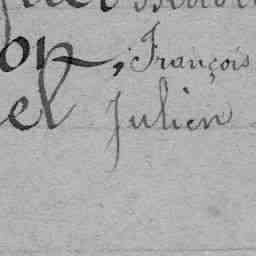 on, François
el Julien